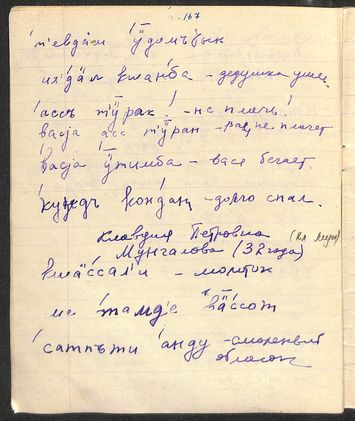 167
п'евда́м ӱдомъɣын
ил'да́л кwанба – дедушка ушел.
ассъ т'ӱрак! – не плачь!
васjа асс т'ӱран – Вася не плачет
васjа ӱтимба – вася бегает.
кундъ кондаң – долго спал.
Клавдия Петровна
Мунгалова (32 года)
кwӓссал'и – молоток
ме тамд'е вӓссот
сатпъти анду –
обласок